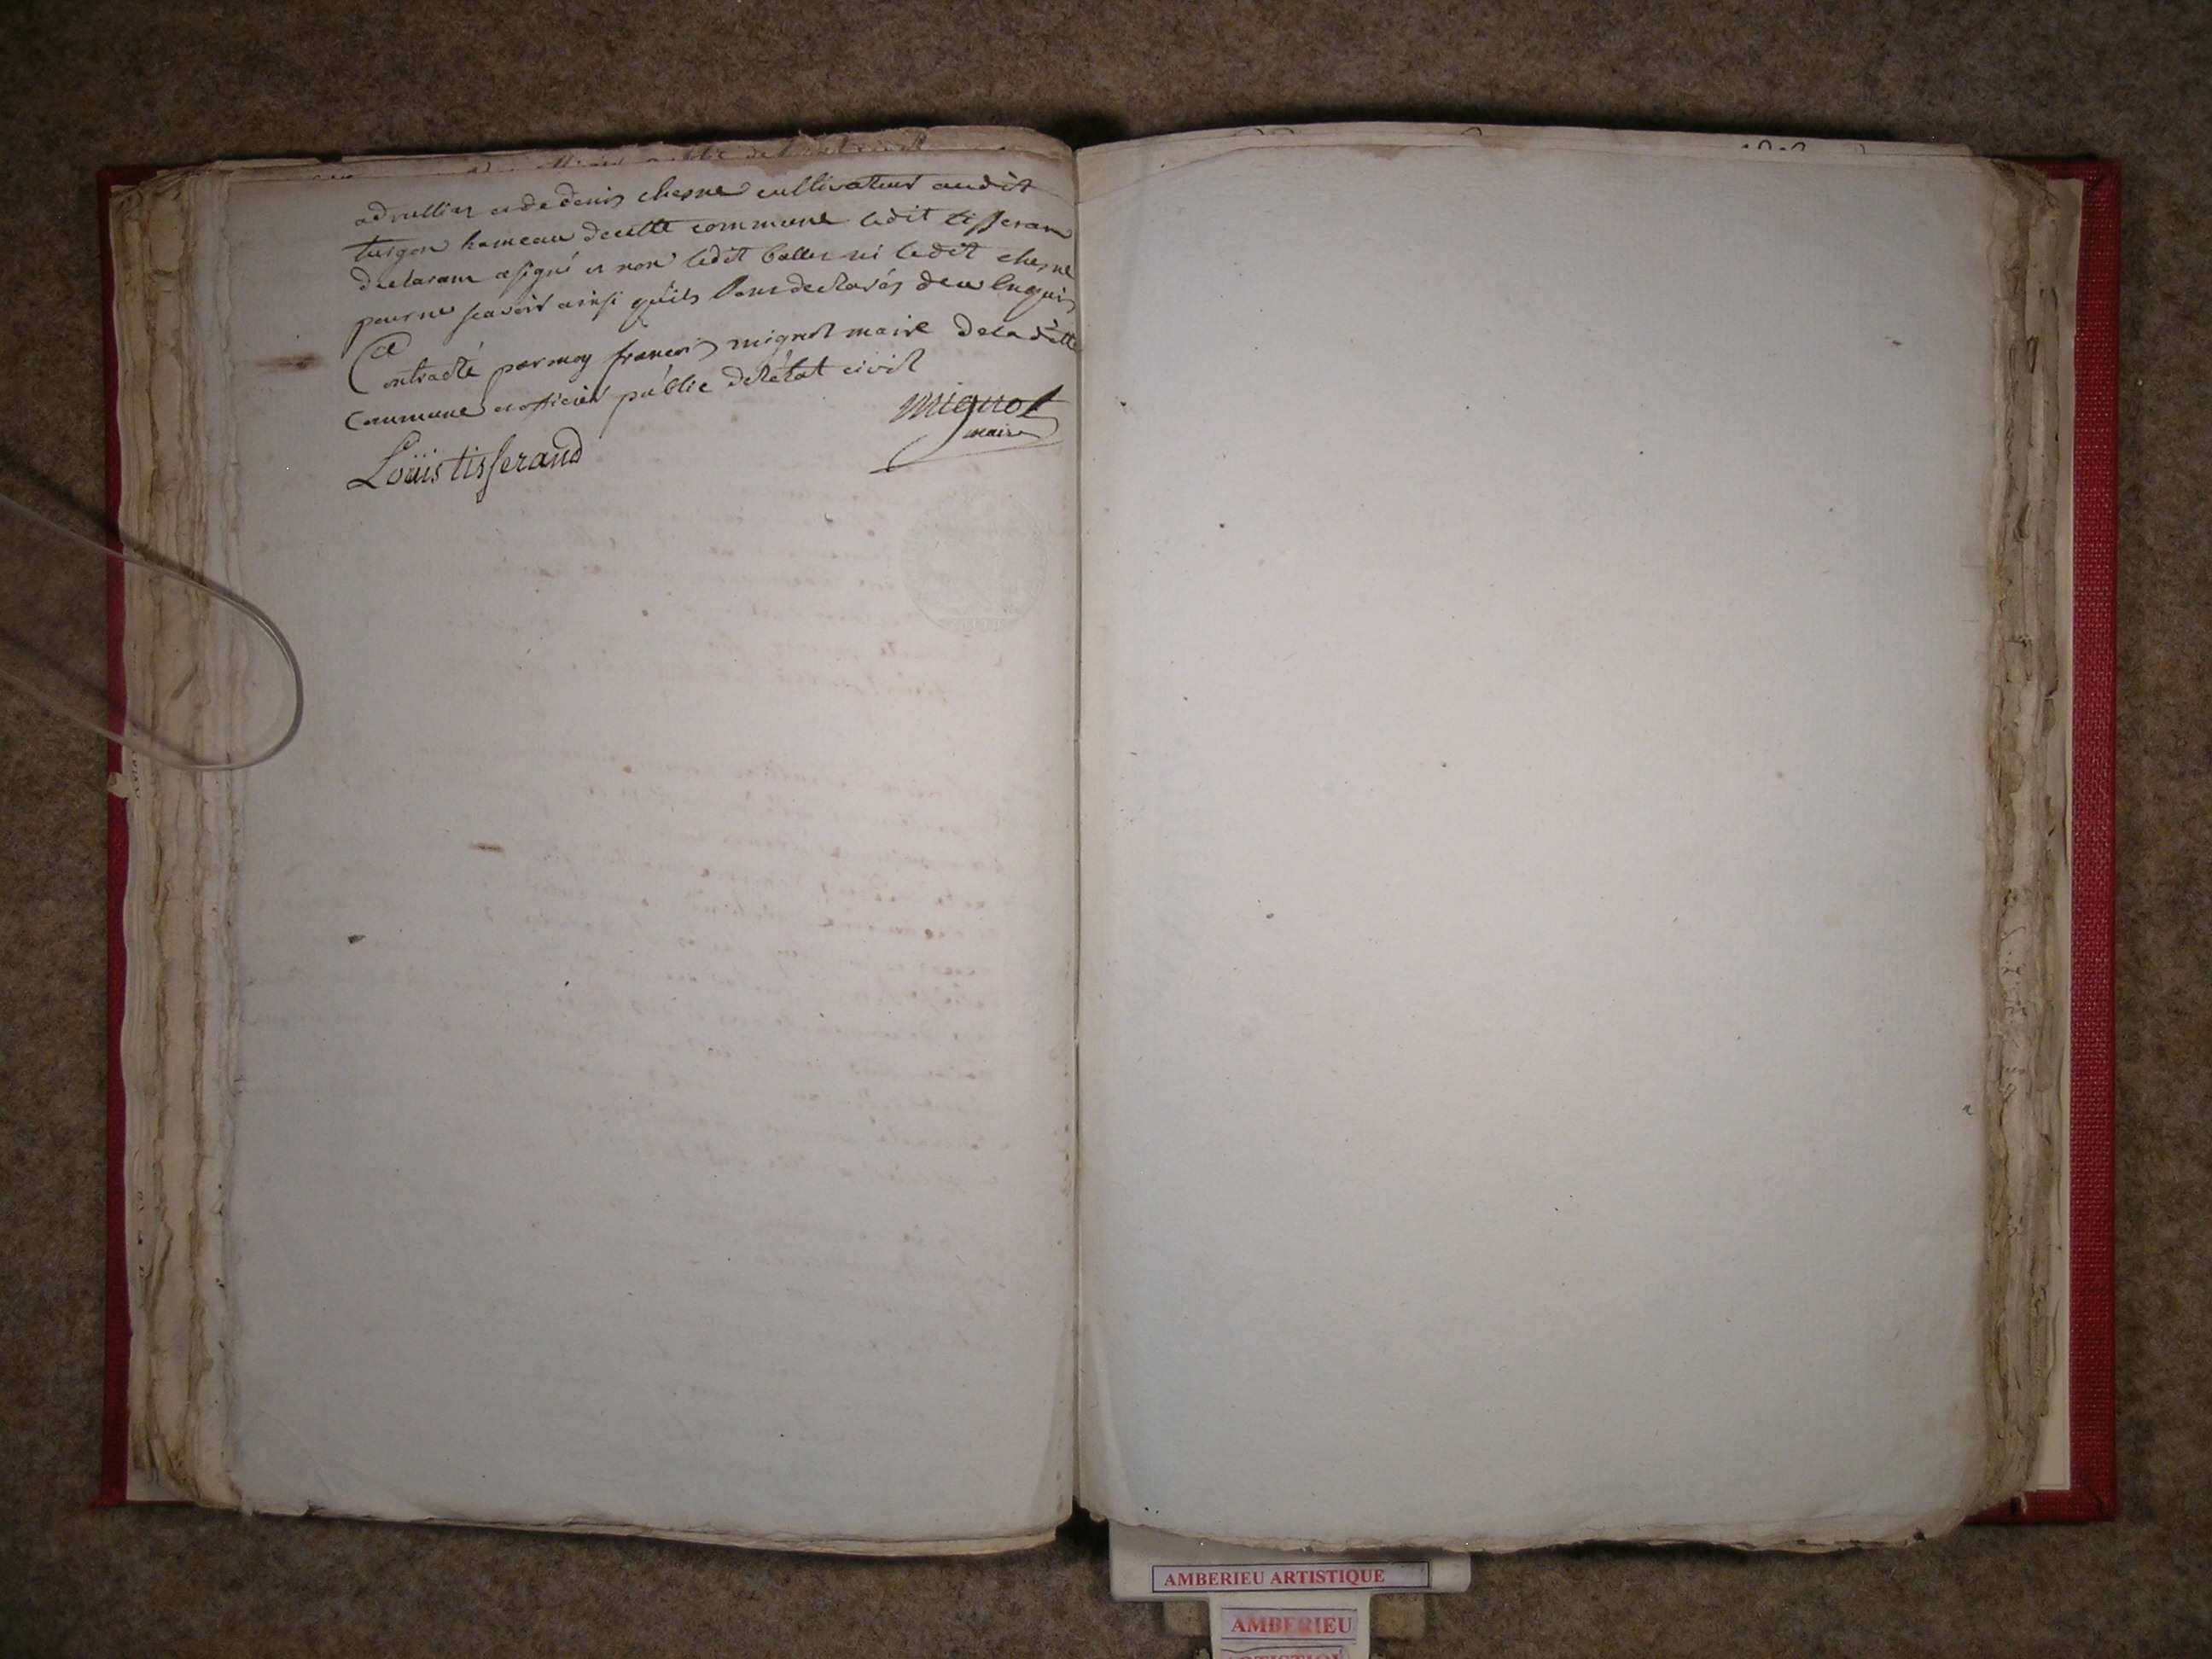 adrullier et de denis chesne cultivateur audit
turgon hameau decette commune ledit tisseran
declarant asigné et non ledit ballet ni ledit chesne
pour ne scavoir ainsi quils l'ont declarés deu Enquis
Ce
ontracté par moy francois mignot maire dela ditte
Commune et officier public de letat civil
mignot
maire
Loüis tisserand
AMBERIEU ARTISTIQUE
AMBERIEU